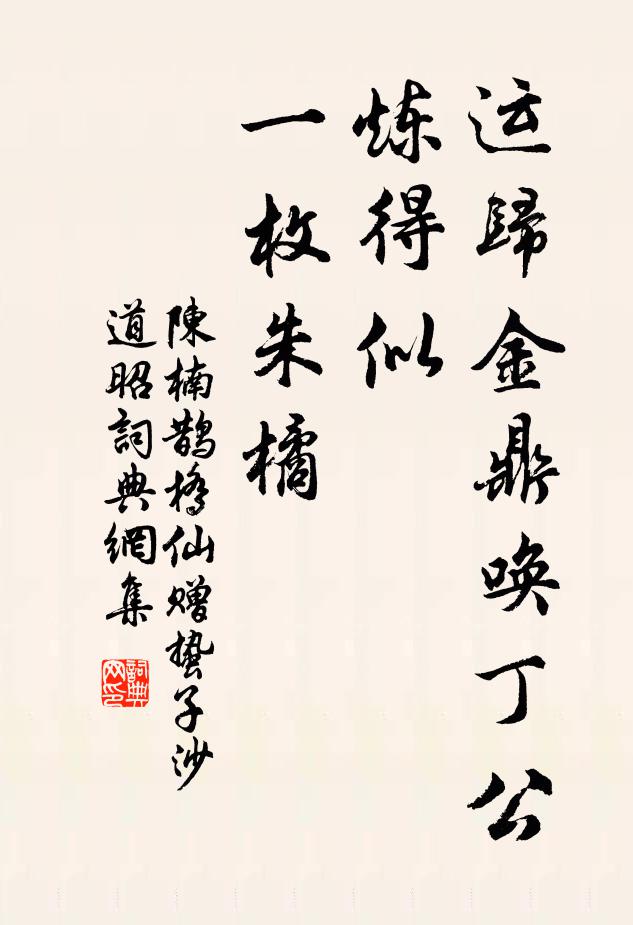 运歸金鼎唤丁公
炼得似
一枚朱橘
陳楠鵲橋仙赠蛰子沙
道昭詞典網集
詞典网印